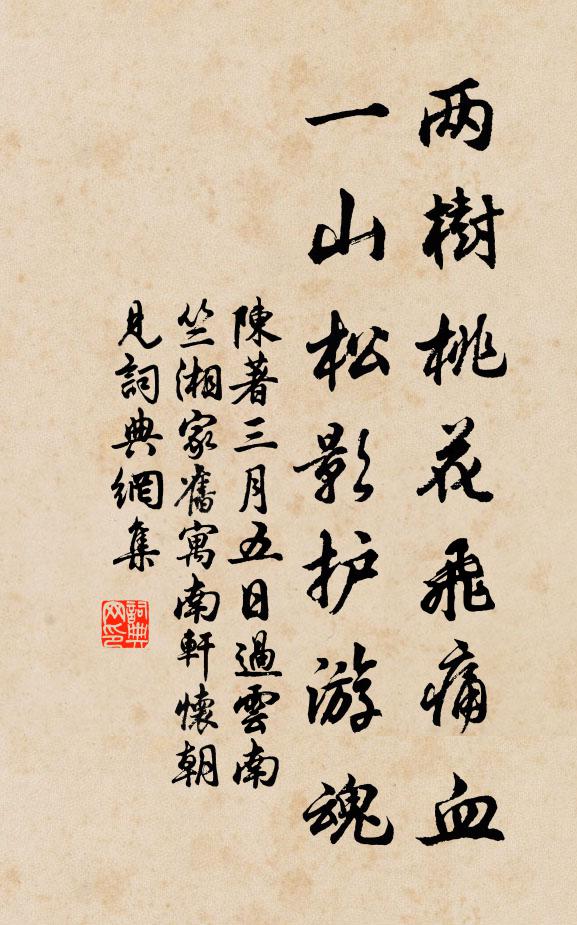 两樹桃花飛痛血
一山松影护游魂
陳著三月五日過雲南
竺湘家舊寓南軒懷朝
見詞典網集
詞典
网印